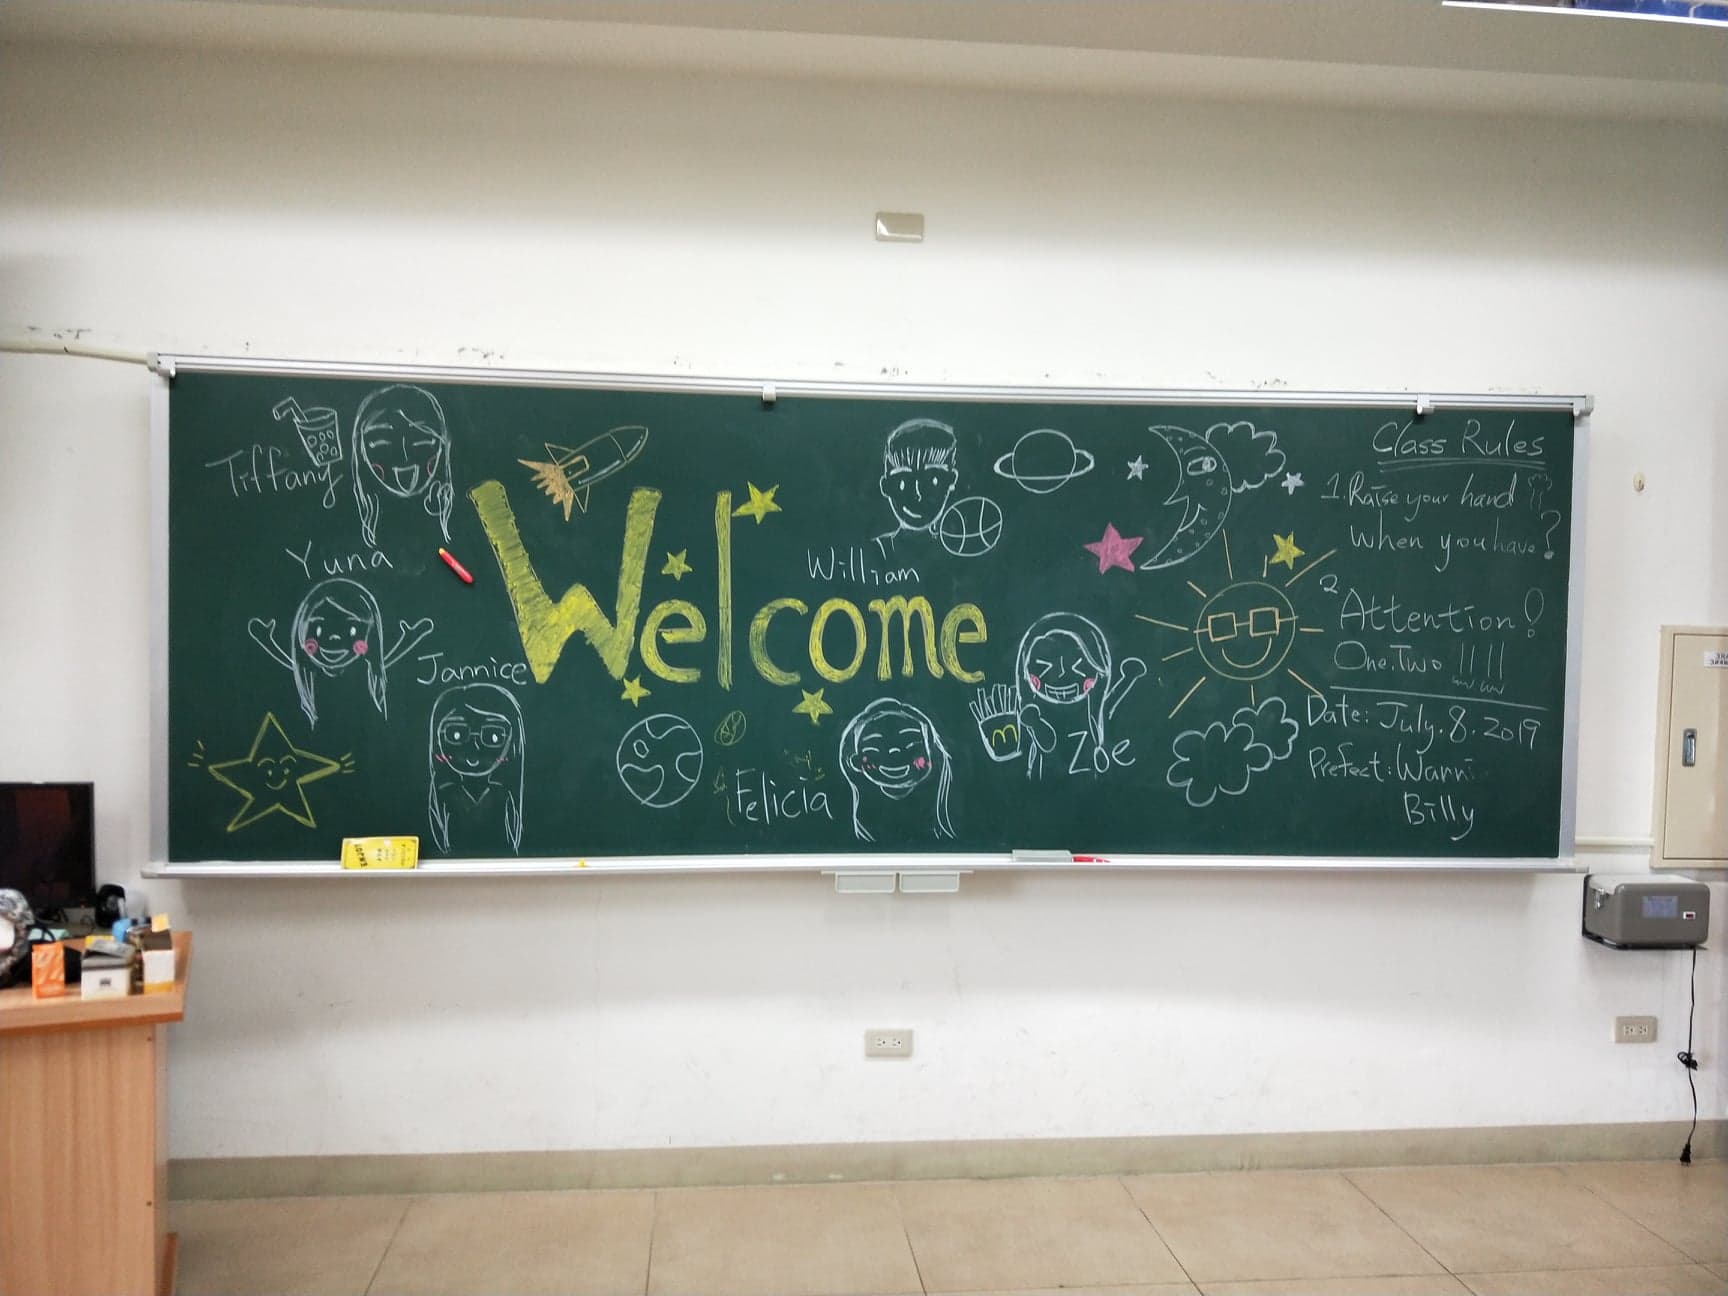 Tiffany
Yuna
Jannice
Welcome
William
Felicia
Zoe
Class Rules
1. Raise your hand
When you have?
2 Attention!
One.Two !!!!
Date: July.8.2019
Prefect: Warni
Billy